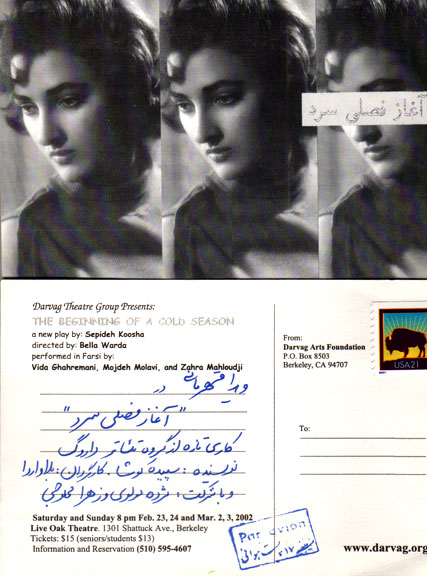 آغاز فصلی سرد
Darvag Theatre Group Presents:
THE BEGINNING OF A COLD SEASON
a new play by: Sepideh Koosha
directed by: Bella Warda
performed in Farsi by:
Vida Ghahremani, Mojdeh Molavi, and Zahra Mahloudji
ویدا قهرمانی در
"آغاز فصلی سرد"
کاری تازه از گروه تئاتر داروگ
نویسنده: سپیده کوشا. کارگردان: بلا واردا
و با شرکت: مژده مولوی و زهرا محلوجی
Saturday and Sunday 8 pm Feb. 23, 24 and Mar. 2, 3, 2002
Live Oak Theatre. 1301 Shattuck Ave., Berkeley
Tickets: $15 (seniors/students $13)
Information and Reservation (510) 595-4607
Par avion
پست هوائی
From:
Darvag Arts Foundation
P.O. Box 8503
Berkeley, CA 94707
USA21
To:
www.darvag.org